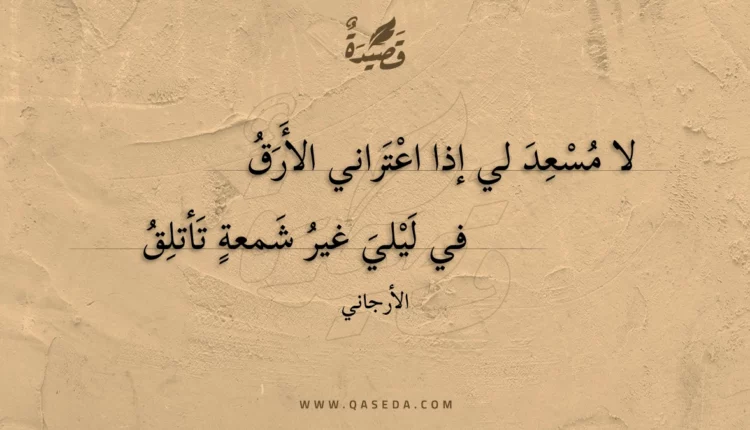 قَصِيدَةٌ
لا مُسْعِدَ لي إذا اعْتَراني الأَرَقُ
في لَيْليَ غيرُ شَمعةٍ تَأتلِقُ
الأرجاني
WWW.QASEDA.COM